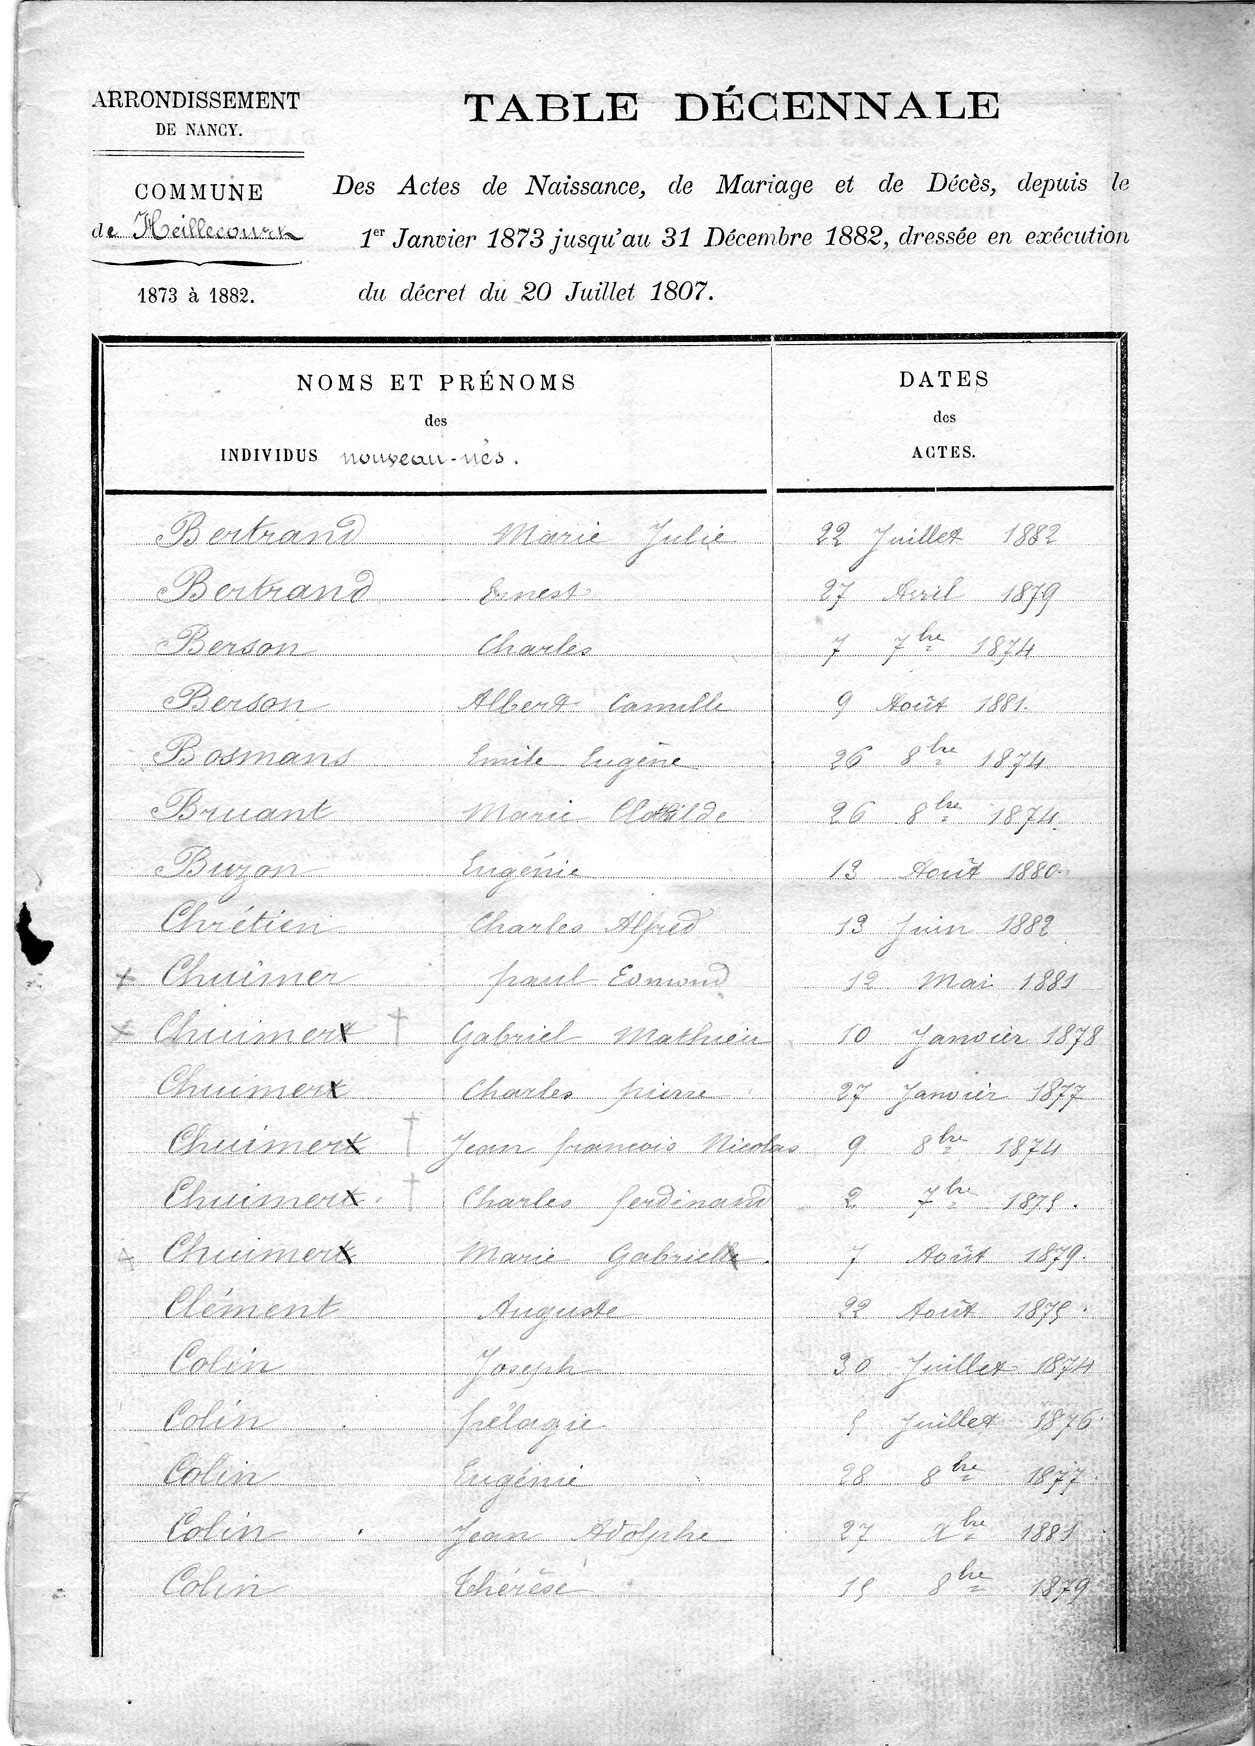 ARRONDISSEMENT
DE NANCY.
COMMUNE
de Heillecourt
1873 à 1882.
TABLE DÉCENNALE
Des Actes de Naissance, de Mariage et de Décès, depuis le
1er Janvier 1873 jusqu'au 31 Décembre 1882, dressée en exécution
du décret du 20 Juillet 1807.
NOMS ET PRÉNOMS
des
INDIVIDUS nouveau-nés.
DATES
des
ACTES.
Bertrand Marie Julie 22 Juillet 1882
Bertrand Ernest 27 Avril 1879
Berson Charles 7 7bre 1874
Berson Albert Camille 9 Août 1881.
Bosmans Emile Eugène 26 8bre 1874
Bruant Marie Clothilde 26 8bre 1874.
Buzon Eugénie 13 Août 1880.
Chrétien Charles Alfred 13 Juin 1882
x Chuimer paul Edmond 12 Mai 1881
x Chuimer † Gabriel Mathieu 10 Janvier 1878
Chuimer Charles pierre 27 Janvier 1877
Chuimer † Jean francois Nicolas 9 8bre 1874
Chuimer † Charles ferdinand 2 7bre 1875.
x Chuimer Marie Gabriel. 7 Août 1879.
Clément Auguste 22 Août 1875.
Colin Joseph 30 Juillet 1874
Colin pélagie 5 Juillet 1876.
Colin Eugénie 28 8bre 1877.
Colin Jean Adolphe 27 Xbre 1881.
Colin Thérèse 15 8bre 1879